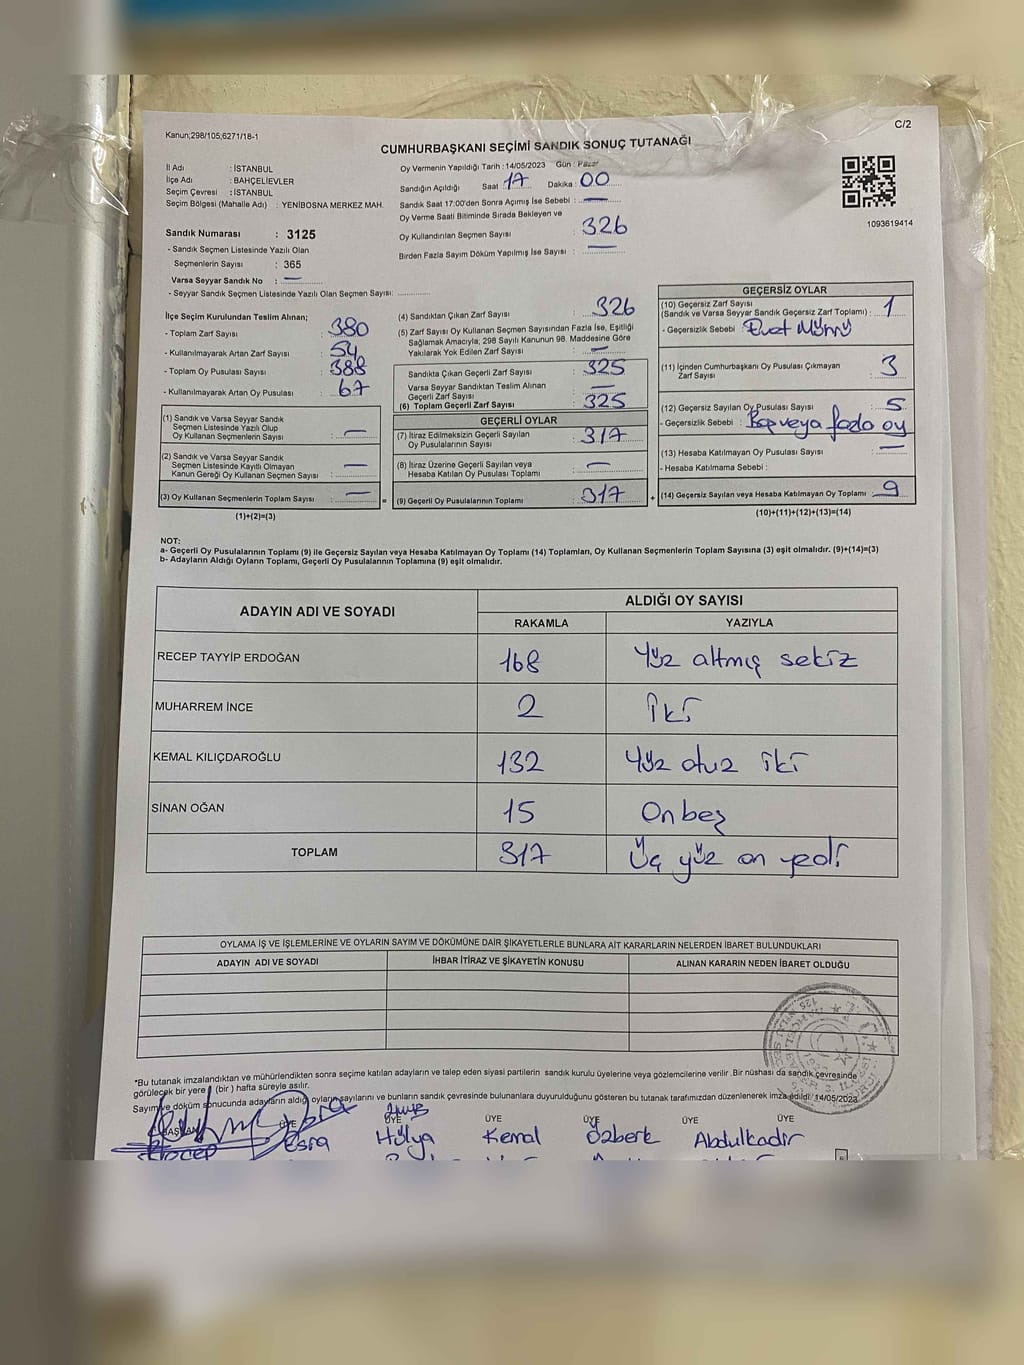 Kanun;298/105;6271/18-1
C/2
CUMHURBAŞKANI SEÇİMİ SANDIK SONUÇ TUTANAĞI
İl Adı : İSTANBUL
İlçe Adı : BAHÇELİEVLER
Seçim Çevresi : İSTANBUL
Seçim Bölgesi (Mahalle Adı) : YENİBOSNA MERKEZ MAH.
Sandık Numarası : 3125
- Sandık Seçmen Listesinde Yazılı Olan
Seçmenlerin Sayısı : 365
Varsa Seyyar Sandık No : —
- Seyyar Sandık Seçmen Listesinde Yazılı Olan Seçmen Sayısı:
Oy Vermenin Yapıldığı Tarih : 14/05/2023 Gün : Pazar
Sandığın Açıldığı Saat : 17 Dakika : 00
Sandık Saat 17:00'den Sonra Açımış İse Sebebi : —
Oy Verme Saati Bitiminde Sırada Bekleyen ve
Oy Kullandırılan Seçmen Sayısı : 326
Birden Fazla Sayım Döküm Yapılmış İse Sayısı : —
1093619414
İlçe Seçim Kurulundan Teslim Alınan;
- Toplam Zarf Sayısı : 380
- Kullanılmayarak Artan Zarf Sayısı : 54
- Toplam Oy Pusulası Sayısı : 388
- Kullanılmayarak Artan Oy Pusulası : 67
(1) Sandık ve Varsa Seyyar Sandık
Seçmen Listesinde Yazılı Olup
Oy Kullanan Seçmenlerin Sayısı : —
(2) Sandık ve Varsa Seyyar Sandık
Seçmen Listesinde Kayıtlı Olmayan
Kanun Gereği Oy Kullanan Seçmen Sayısı : —
(3) Oy Kullanan Seçmenlerin Toplam Sayısı : — =
(1)+(2)=(3)
(4) Sandıktan Çıkan Zarf Sayısı : 326
(5) Zarf Sayısı Oy Kullanan Seçmen Sayısından Fazla İse, Eşitliği
Sağlamak Amacıyla; 298 Sayılı Kanunun 98. Maddesine Göre
Yakılarak Yok Edilen Zarf Sayısı : —
Sandıkta Çıkan Geçerli Zarf Sayısı : 325
Varsa Seyyar Sandıktan Teslim Alınan
Geçerli Zarf Sayısı : —
(6) Toplam Geçerli Zarf Sayısı : 325
GEÇERLİ OYLAR
(7) İtiraz Edilmeksizin Geçerli Sayılan
Oy Pusulalarının Sayısı : 317
(8) İtiraz Üzerine Geçerli Sayılan veya
Hesaba Katılan Oy Pusulası Toplamı : —
(9) Geçerli Oy Pusulalarının Toplamı : 317 +
GEÇERSİZ OYLAR
(10) Geçersiz Zarf Sayısı
(Sandık ve Varsa Seyyar Sandık Geçersiz Zarf Toplamı) : 1
- Geçersizlik Sebebi : Evet Mührü
(11) İçinden Cumhurbaşkanı Oy Pusulası Çıkmayan
Zarf Sayısı : 3
(12) Geçersiz Sayılan Oy Pusulası Sayısı : 5
- Geçersizlik Sebebi : Boş veya fazla oy
(13) Hesaba Katılmayan Oy Pusulası Sayısı : —
- Hesaba Katılmama Sebebi :
(14) Geçersiz Sayılan veya Hesaba Katılmayan Oy Toplamı : 9
(10)+(11)+(12)+(13)=(14)
NOT:
a- Geçerli Oy Pusulalarının Toplamı (9) ile Geçersiz Sayılan veya Hesaba Katılmayan Oy Toplamı (14) Toplamları, Oy Kullanan Seçmenlerin Toplam Sayısına (3) eşit olmalıdır. (9)+(14)=(3)
b- Adayların Aldığı Oyların Toplamı, Geçerli Oy Pusulalarının Toplamına (9) eşit olmalıdır.
ADAYIN ADI VE SOYADI
ALDIĞI OY SAYISI
RAKAMLA YAZIYLA
RECEP TAYYİP ERDOĞAN 168 Yüz altmış sekiz
MUHARREM İNCE 2 İki
KEMAL KILIÇDAROĞLU 132 Yüz otuz iki
SİNAN OĞAN 15 On beş
TOPLAM 317 Üç yüz on yedi
OYLAMA İŞ VE İŞLEMLERİNE VE OYLARIN SAYIM VE DÖKÜMÜNE DAİR ŞİKAYETLERLE BUNLARA AİT KARARLARIN NELERDEN İBARET BULUNDUKLARI
ADAYIN ADI VE SOYADI İHBAR İTİRAZ VE ŞİKAYETİN KONUSU ALINAN KARARIN NEDEN İBARET OLDUĞU
*Bu tutanak imzalandıktan ve mühürlendikten sonra seçime katılan adayların ve talep eden siyasi partilerin sandık kurulu üyelerine veya gözlemcilerine verilir .Bir nüshası da sandık çevresinde
görülecek bir yere 1 (bir ) hafta süreyle asılır.
Sayım ve döküm sonucunda adayların aldığı oyların sayılarını ve bunların sandık çevresinde bulunanlara duyurulduğunu gösteren bu tutanak tarafımızdan düzenlenerek imza edildi. 14/05/2023
BAŞKAN ÜYE ÜYE ÜYE ÜYE ÜYE ÜYE
Recep Esra Hülya Kemal Özberk Abdulkadir